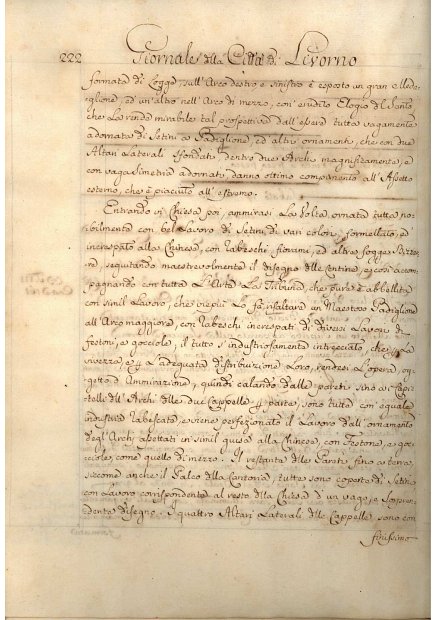 222 Giornale della Città di Livorno
formata di Logge, sull'Arco destro e sinistro è esposto un gran Meda-
glione, ed un'altro nell'Arco di mezzo, con erudito Elogio del Santo
che La rende mirabile tal prospettiva dall'essere tutta vagamente
adornata di Setini a Padiglione, ed altri ornamenti, che con due
Altari Laterali sfondati, dentro due Archi magnificamente, e
con vaga simetria adornati, danno ottimo componento all'Aspetto
esterno, che è piaciuto all'estremo.
Entrando in Chiesa poi, ammirasi La Volta ornata tutta no-
bilmente con bel lavoro di Setini di vari colori, formellato, ed
increspato alla Chinese, con rabeschi, fiorami, ed altre fogge Bizzar-
re, seguitando maestrevolmente il disegno delle Centine, e così accom-
pagnando con tutta L'Arte La Tribuna, che pure è abbellita
con simil Lavoro, che vie più La fà risaltare un Maestoso Padiglione
all'Arco maggiore, con rabeschi increspati di diversi Lavori di
festoni, e gocciole; il tutto s'industrosamente intrecciato, che La
vivezza, e L'adeguata distribuzione Loro, rendesi L'opera og-
getto d'Ammirazione, quindi calando dalle pareti sino ai Capi-
telli dell'Archi delle due Cappelle p parte, sono tutta con eguale
industria rabescata, e viene perfezionato il Lavoro dall'ornamento
degl'Archi in simil guisa alla Chinese, con Festone, e goc-
ciole, come quello di mezzo. Il restante delle Pareti fino a terra,
siccome anche il Palco della Cantoria, tutte sono coperte di Setini
con Lavoro corrispondente al resto della Chiesa d'un vago, e sorpren-
dente disegno. I quattro Altari Laterali delle Cappelle sono con